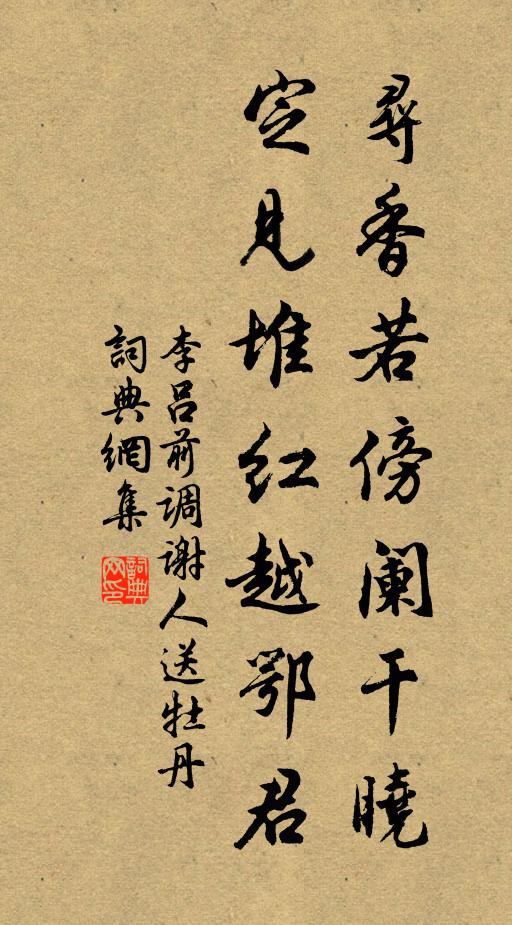 尋香若傍阑干曉
定見堆红越鄂君
李吕前调谢人送牡丹
詞典網集
詞典网印